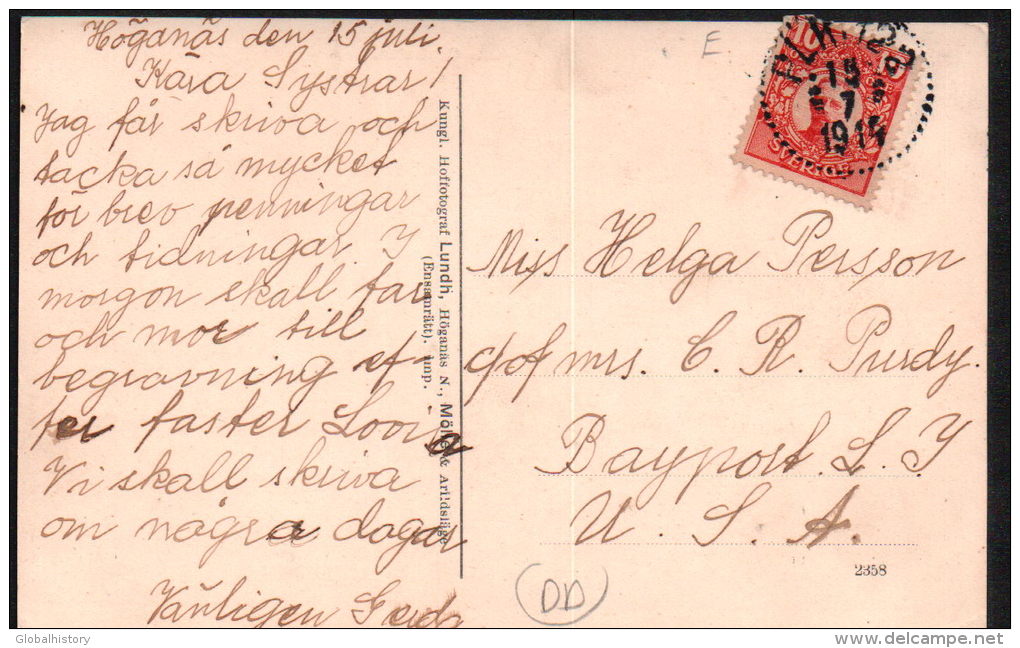 Höganäs den 15 juli.
Kära Systrar!
Jag får skriva och
tacka så mycket
för brev penningar
och tidningar. I
morgon skall far
och mor till
begravning ef-
ter faster Lovisa
Vi skall skriva
om några dagar
Vänligen Gerda
Kungl. Hoffotograf Lundh, Höganäs N., Mölle & Arildsläge
(Ensamrätt). imp.
E
PLK 122
15
7
1914
10 10
SVERIGE
Miss Helga Persson
c/of mrs. C. R. Purdy.
Bayport. L. I
U. S. A.
2358
DD
Globalhistory
delcampe.net